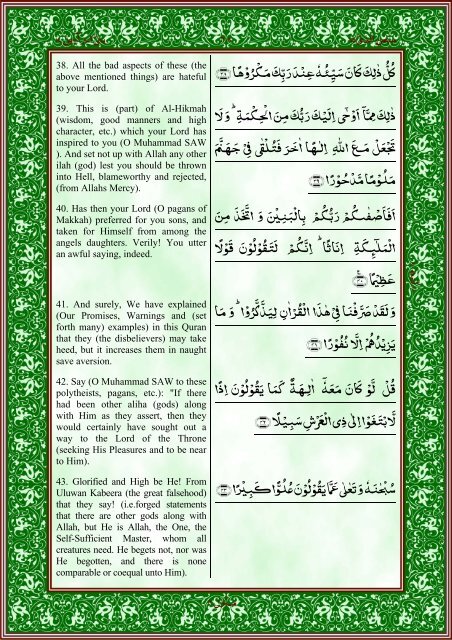 38. All the bad aspects of these (the
above mentioned things) are hateful
to your Lord.
كُلُّ ذٰلِكَ كَانَ سَيِّئُهٗ عِنْدَ رَبِّكَ مَكْرُوْهًا
39. This is (part) of Al-Hikmah
(wisdom, good manners and high
character, etc.) which your Lord has
inspired to you (O Muhammad SAW
). And set not up with Allah any other
ilah (god) lest you should be thrown
into Hell, blameworthy and rejected,
(from Allahs Mercy).
ذٰلِكَ مِمَّاۤ اَوْحٰۤى اِلَيْكَ رَبُّكَ مِنَ الْحِكْمَةِ ؕ وَلَا
تَجْعَلْ مَعَ اللّٰهِ اِلٰهًا اٰخَرَ فَتُلْقٰى فِيْ جَهَنَّمَ
مَلُوْمًا مَّدْحُوْرًا
40. Has then your Lord (O pagans of
Makkah) preferred for you sons, and
taken for Himself from among the
angels daughters. Verily! You utter
an awful saying, indeed.
اَفَاَصْفٰىكُمْ رَبُّكُمْ بِالْبَنِيْنَ وَ اتَّخَذَ مِنَ
الْمَلٰٓئِكَةِ اِنَاثًا ؕ اِنَّكُمْ لَتَقُوْلُوْنَ قَوْلًا
عَظِيْمًا
41. And surely, We have explained
(Our Promises, Warnings and (set
forth many) examples) in this Quran
that they (the disbelievers) may take
heed, but it increases them in naught
save aversion.
وَ لَقَدْ صَرَّفْنَا فِيْ هٰذَا الْقُرْاٰنِ لِيَذَّكَّرُوْا ؕ وَ مَا
يَزِيْدُهُمْ اِلَّا نُفُوْرًا
42. Say (O Muhammad SAW to these
polytheists, pagans, etc.): "If there
had been other aliha (gods) along
with Him as they assert, then they
would certainly have sought out a
way to the Lord of the Throne
(seeking His Pleasures and to be near
to Him).
قُلْ لَّوْ كَانَ مَعَهٗۤ اٰلِهَةٌ كَمَا يَقُوْلُوْنَ اِذًا
لَّابْتَغَوْا اِلٰى ذِي الْعَرْشِ سَبِيْلًا
43. Glorified and High be He! From
Uluwan Kabeera (the great falsehood)
that they say! (i.e.forged statements
that there are other gods along with
Allah, but He is Allah, the One, the
Self-Sufficient Master, whom all
creatures need. He begets not, nor was
He begotten, and there is none
comparable or coequal unto Him).
سُبْحٰنَهٗ وَ تَعٰلٰى عَمَّا يَقُوْلُوْنَ عُلُوًّا كَبِيْرًا